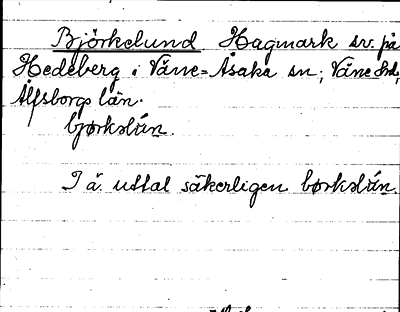 Björkelund Hagmark sv. på
Hedeberg i Väne=Åsaka sn; Väne hd,
Älfsborgs län.
bjørkəlún.
I ä. uttal säkerligen børkəlún.